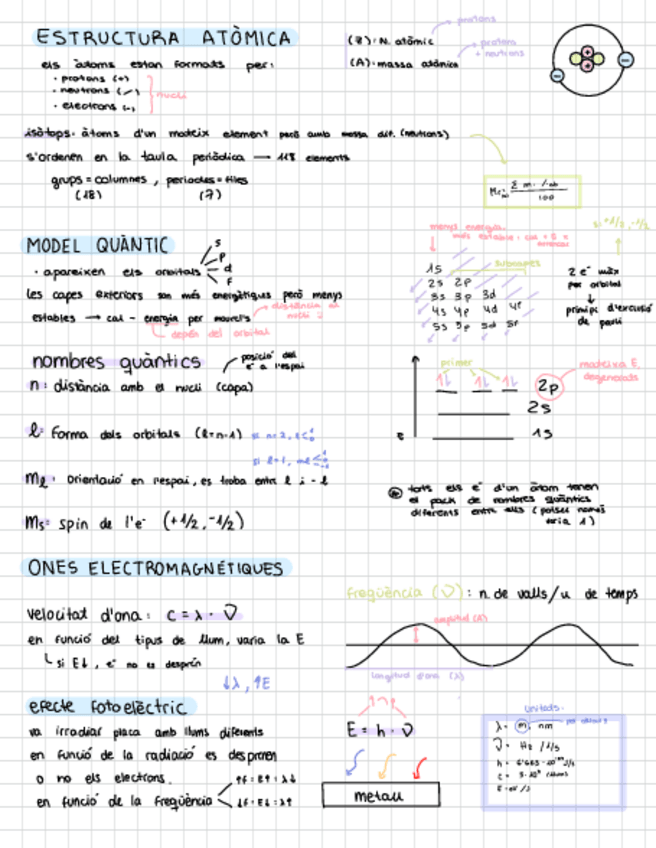 ESTRUCTURA ATÒMICA
els àtoms estan formats per:
· protons (+)
· neutrons (/)
· electrons (-)
nucli
(Z): N. atòmic
protons
(A): massa atòmica
protons + neutrons
isòtops: àtoms d'un mateix element però amb massa dif. (neutrons)
s'ordenen en la taula periòdica → 118 elements
grups = columnes , períodes = files
(18) (7)
100
MODEL QUÀNTIC
· apareixen els orbitals
s
p
d
f
les capes exteriors són més energètiques però menys
estables → cal - energia per moure's
depèn del orbital
menys energia
subcapes
1s
2s 2p
3s 3p 3d
4s 4p 4d 4f
5s 5p 5d 5f
+1/2, -1/2
2 e⁻ màx
per orbital
↓
principi d'exclusió
de pauli
nombres quàntics
posició del
e⁻ a l'espai
n: distància amb el nucli (capa)
l: forma dels orbitals (l=n-1)
ml: orientació en l'espai, es troba entre l i -l
ms: spin de l'e⁻ (+1/2, -1/2)
primer
2p
mateixa E,
degenerats
2s
1s
E
tots els e⁻ d'un àtom tenen
el pack de nombres quàntics
diferents entre ells
ONES ELECTROMAGNÉTIQUES
velocitat d'ona: c = λ · ν
en funció del tipus de llum, varia la E
si E↓, e⁻ no es desprèn
↓λ, ↑E
freqüència (ν): n. de valls/u. de temps
amplitud (A)
longitud d'ona (λ)
efecte fotoelèctric
va irradiar placa amb llums diferents
en funció de la radiació es desprenen
o no els electrons.
en funció de la freqüència
↑f : E↑ : λ↓
↓f : E↓ : λ↑
E = h · ν
metall
unitats:
λ = m, nm
ν = Hz / 1/s